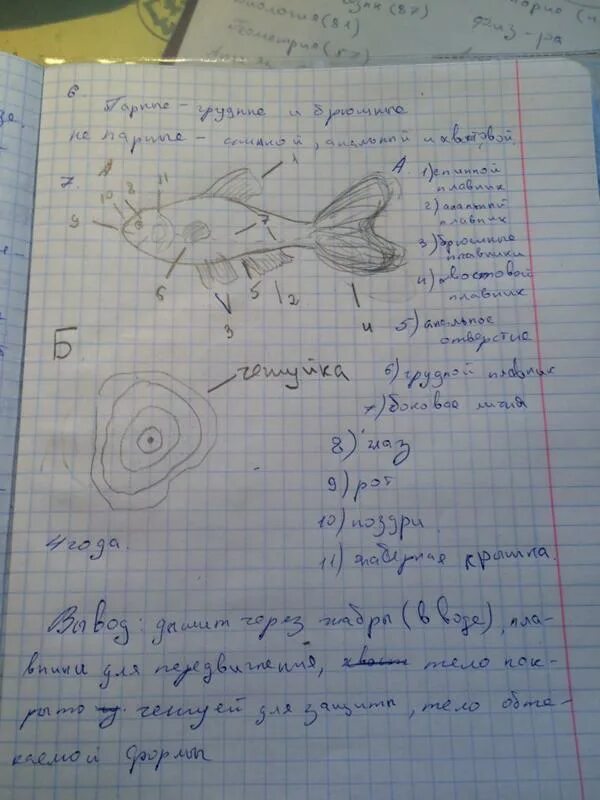 биология (81)
геометрия (87)
физ-ра
6.
Парные - грудные и брюшные
не парные - спинной, анальный и хвостовой.
7. А
1
А. 1) спинной
плавник
2) анальный
плавник
3) брюшные
плавники
4) хвостовой
плавник
5) анальное
отверстие
6) грудной плавник
7) боковое линия
8) глаз
9) рот
10) ноздри
11) жаберная крышка.
11
8
10
9
7
6
5
2
3
4
Б
чешуйка
4 года.
Вывод: дышит через жабры (в воде), пла-
вники для передвигения, хвост тело пок-
рыто чешуей для защиты, тело обте-
каемой формы